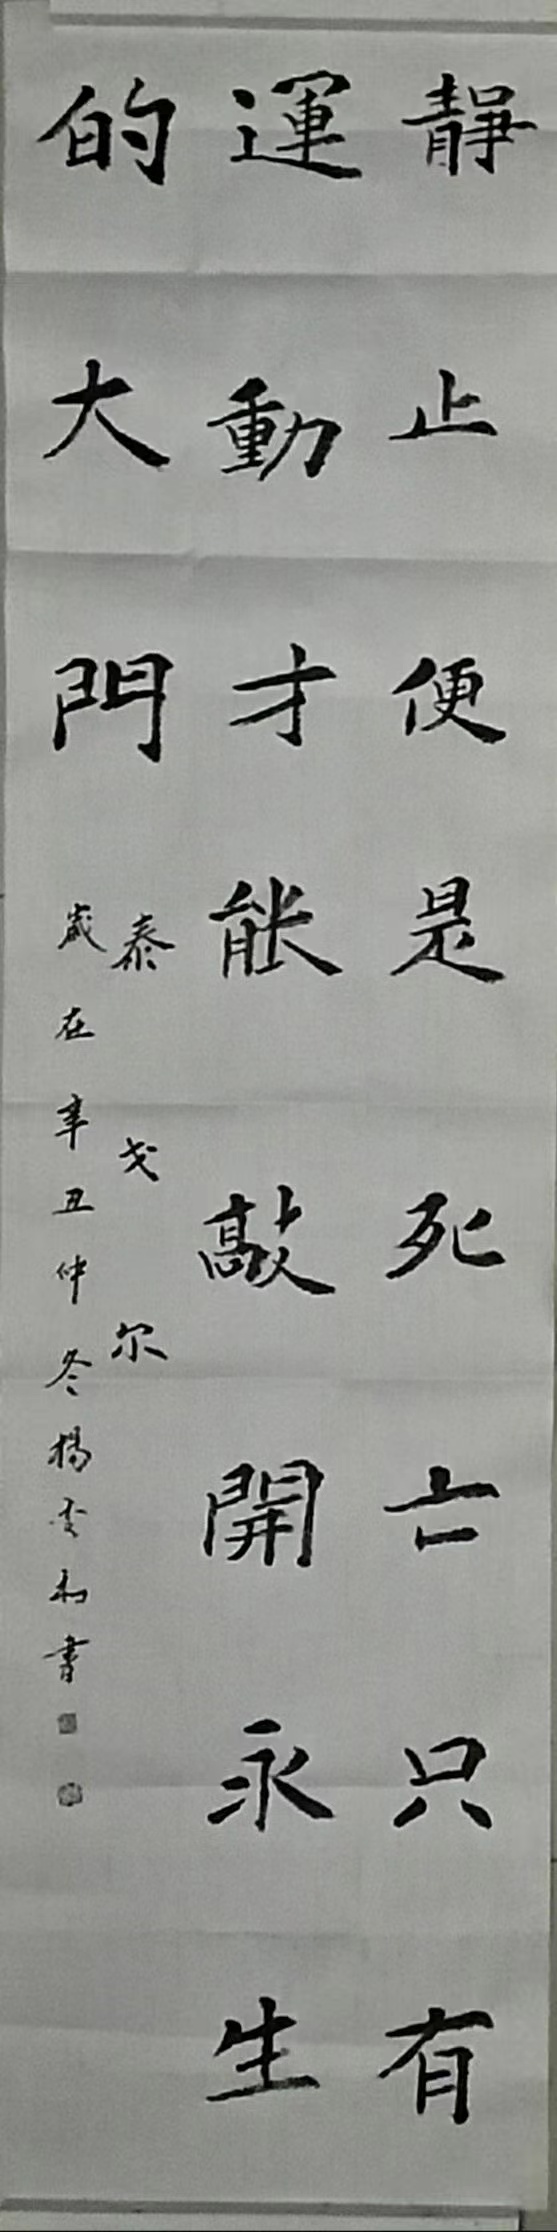 靜止便是死亡只有
運動才能敲開永生
的大門
泰戈尔
歲在辛丑仲冬楊書